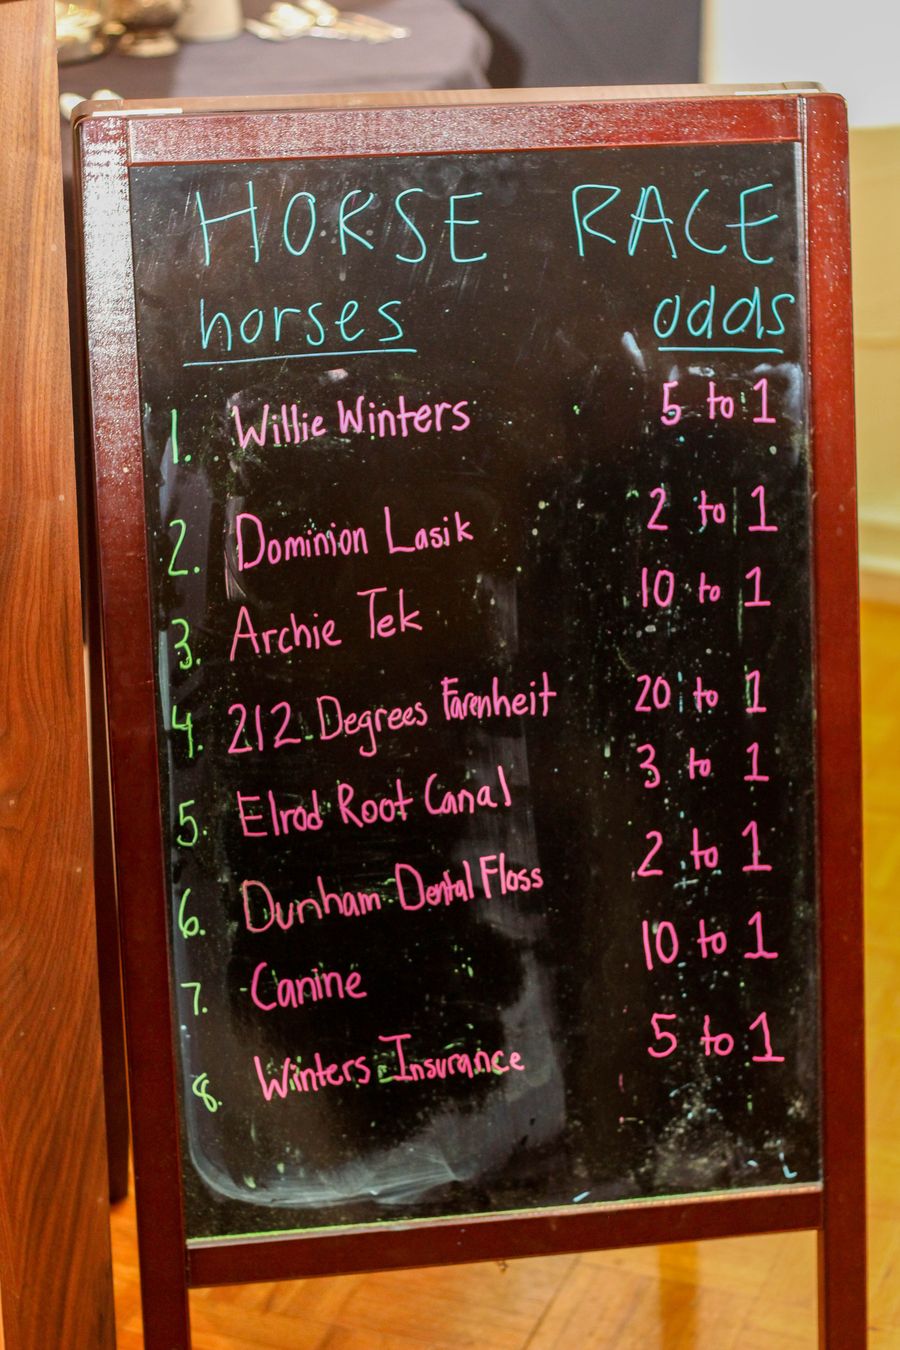 HORSE RACE
horses odds
1. Willie Winters 5 to 1
2. Dominion Lasik 2 to 1
3. Archie Tek 10 to 1
4. 212 Degrees Farenheit 20 to 1
5. Elrod Root Canal 3 to 1
6. Dunham Dental Floss 2 to 1
7. Canine 10 to 1
8. Winters Insurance 5 to 1